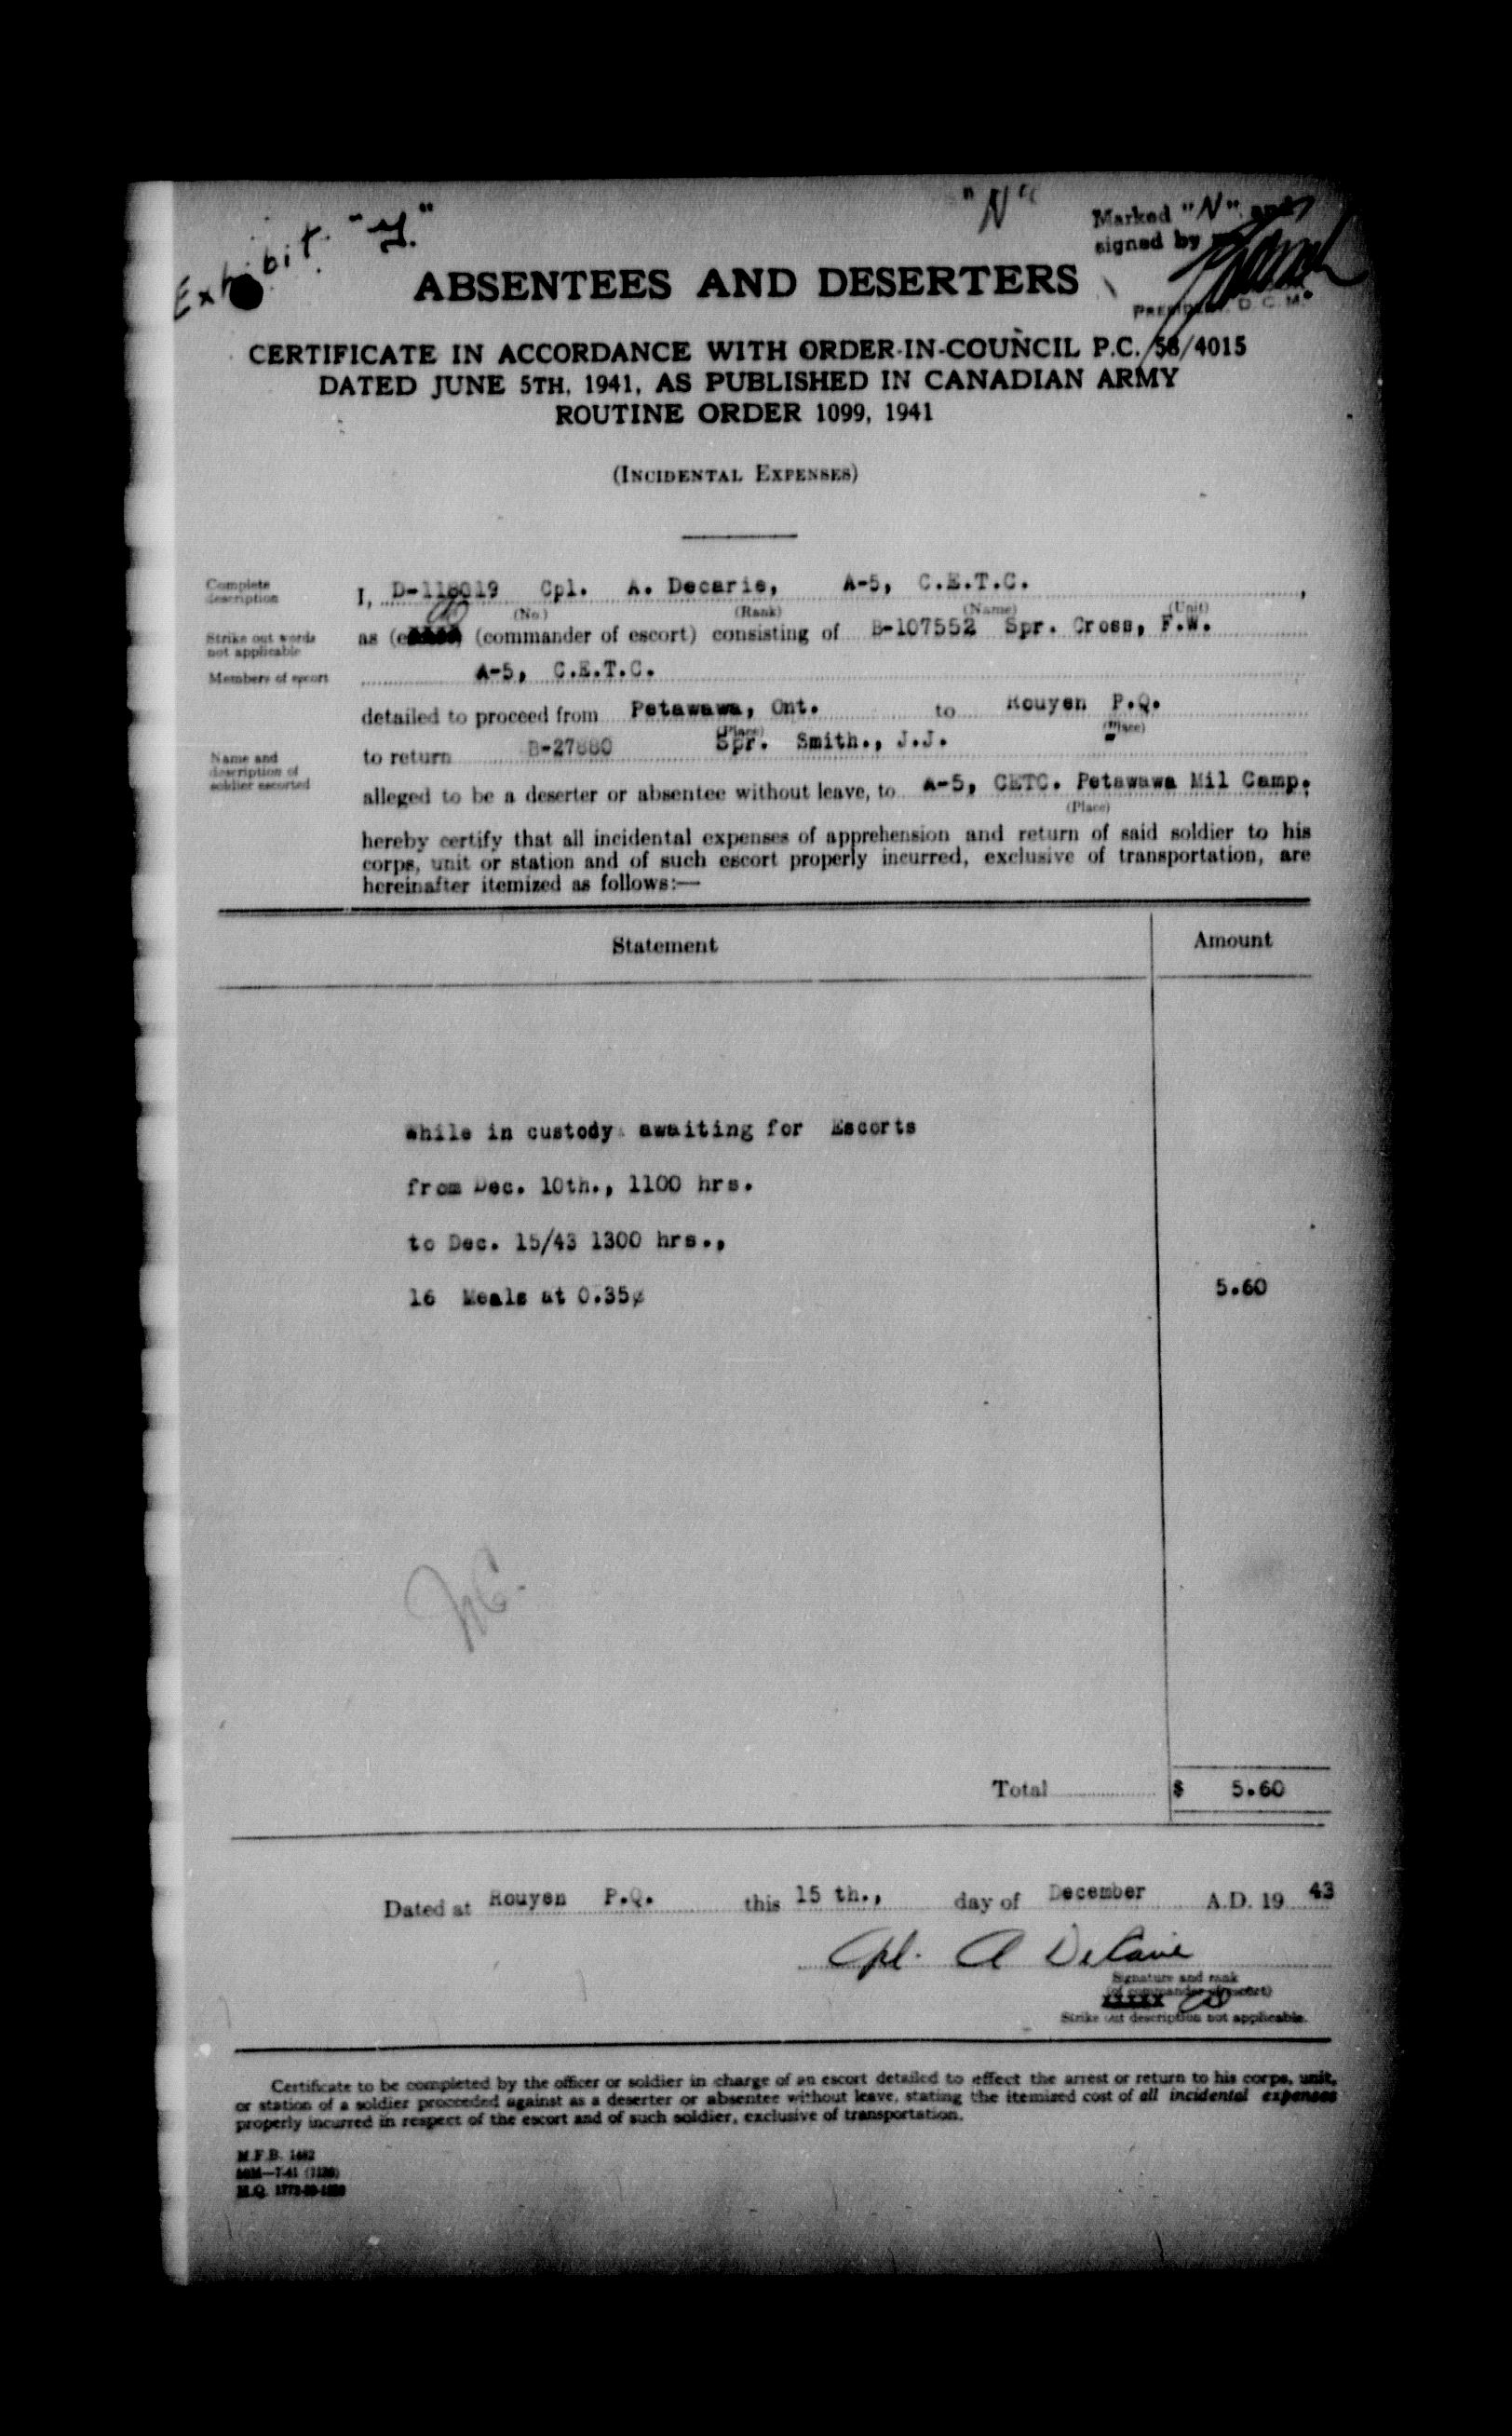 Exhibit "Y."
"N"
Marked "N" and
signed by
PRESIDENT. D. C. M.
ABSENTEES AND DESERTERS
CERTIFICATE IN ACCORDANCE WITH ORDER-IN-COUNCIL P.C. 58/4015
DATED JUNE 5TH, 1941, AS PUBLISHED IN CANADIAN ARMY
ROUTINE ORDER 1099, 1941
(INCIDENTAL EXPENSES)
Complete
description
I, D-118019 Cpl. A. Decarie, A-5, C.E.T.C.,
(No.) (Rank) (Name) (Unit)
Strike out words
not applicable
as (commander of escort) consisting of B-107552 Spr. Cross, F.W.
Members of escort
A-5, C.E.T.C.
detailed to proceed from Petawawa, Ont. to Rouyen P.Q.
(Place) (Place)
Name and
description of
soldier escorted
to return B-27880 Spr. Smith., J.J.
alleged to be a deserter or absentee without leave, to A-5, CETC. Petawawa Mil Camp.
(Place)
hereby certify that all incidental expenses of apprehension and return of said soldier to his
corps, unit or station and of such escort properly incurred, exclusive of transportation, are
hereinafter itemized as follows:—
Statement Amount
While in custody awaiting for Escorts
from Dec. 10th., 1100 hrs.
to Dec. 15/43 1300 hrs.,
16 Meals at 0.35¢ 5.60
Total $ 5.60
Dated at Rouyen P.Q. this 15 th., day of December A.D. 19 43
Cpl. A Decarie
Signature and rank
(of commander of escort)
xxxxx
Strike out description not applicable.
Certificate to be completed by the officer or soldier in charge of an escort detailed to effect the arrest or return to his corps, unit,
or station of a soldier proceeded against as a deserter or absentee without leave, stating the itemized cost of all incidental expenses
properly incurred in respect of the escort and of such soldier, exclusive of transportation.
M.F.B. 1482